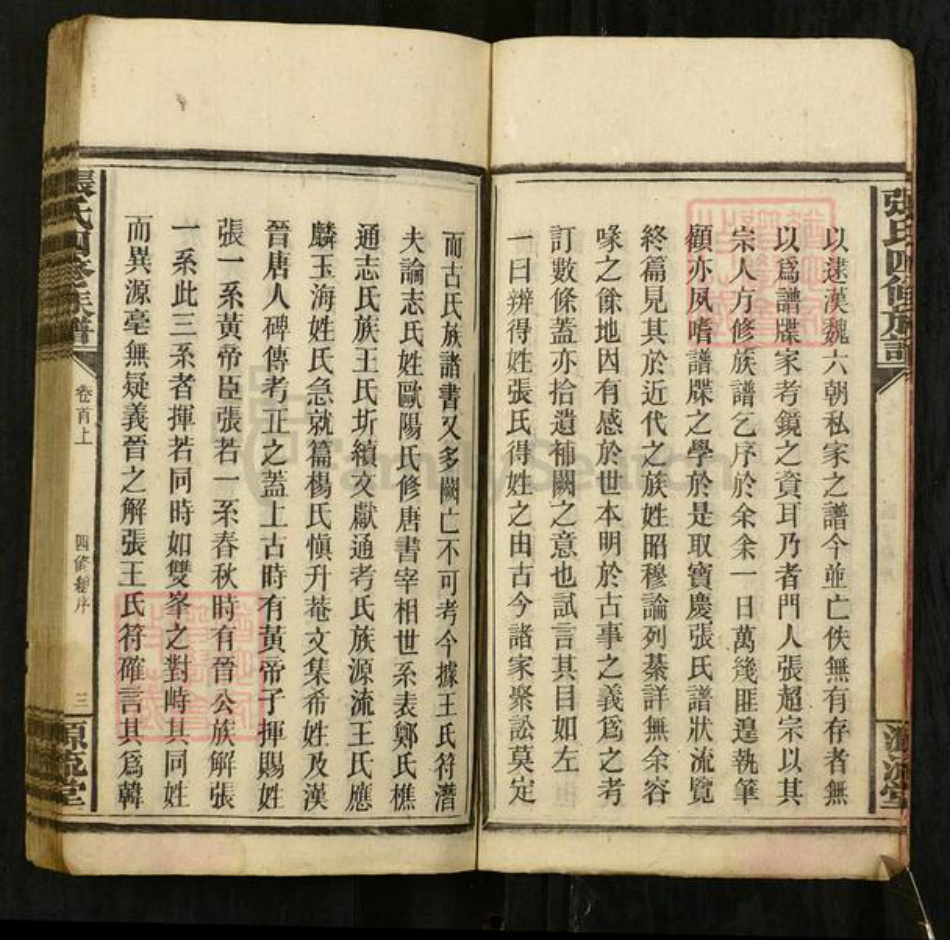 張氏四修族譜
以逮漢魏六朝私家之譜今並亡佚無有存者無
以爲譜牒家考鏡之資耳乃者門人張超宗以其
宗人方修族譜乞序於余余一日萬幾匪遑執筆
顧亦夙嗜譜牒之學於是取寶慶張氏譜狀流覽
終篇見其於近代之族姓昭穆論列綦詳無余容
喙之餘地因有感於世本明於古事之義爲之考
訂數條蓋亦拾遺補闕之意也試言其目如左
一曰辨得姓張氏得姓之由古今諸家聚訟莫定
而古氏族諸書又多闕亡不可考今據王氏符潛
夫論志氏姓歐陽氏修唐書宰相世系表鄭氏樵
通志氏族王氏圻續文獻通考氏族源流王氏應
麟玉海姓氏急就篇楊氏愼升菴文集希姓及漢
晉唐人碑傳考正之蓋上古時有黃帝子揮賜姓
張一系黃帝臣張若一系春秋時有晉公族解張
一系此三系者揮若同時如雙峯之對峙其同姓
而異源毫無疑義晉之解張王氏符確言其爲韓
張氏四修族譜
卷首上
四修總序
三
源流堂
FamilySearch